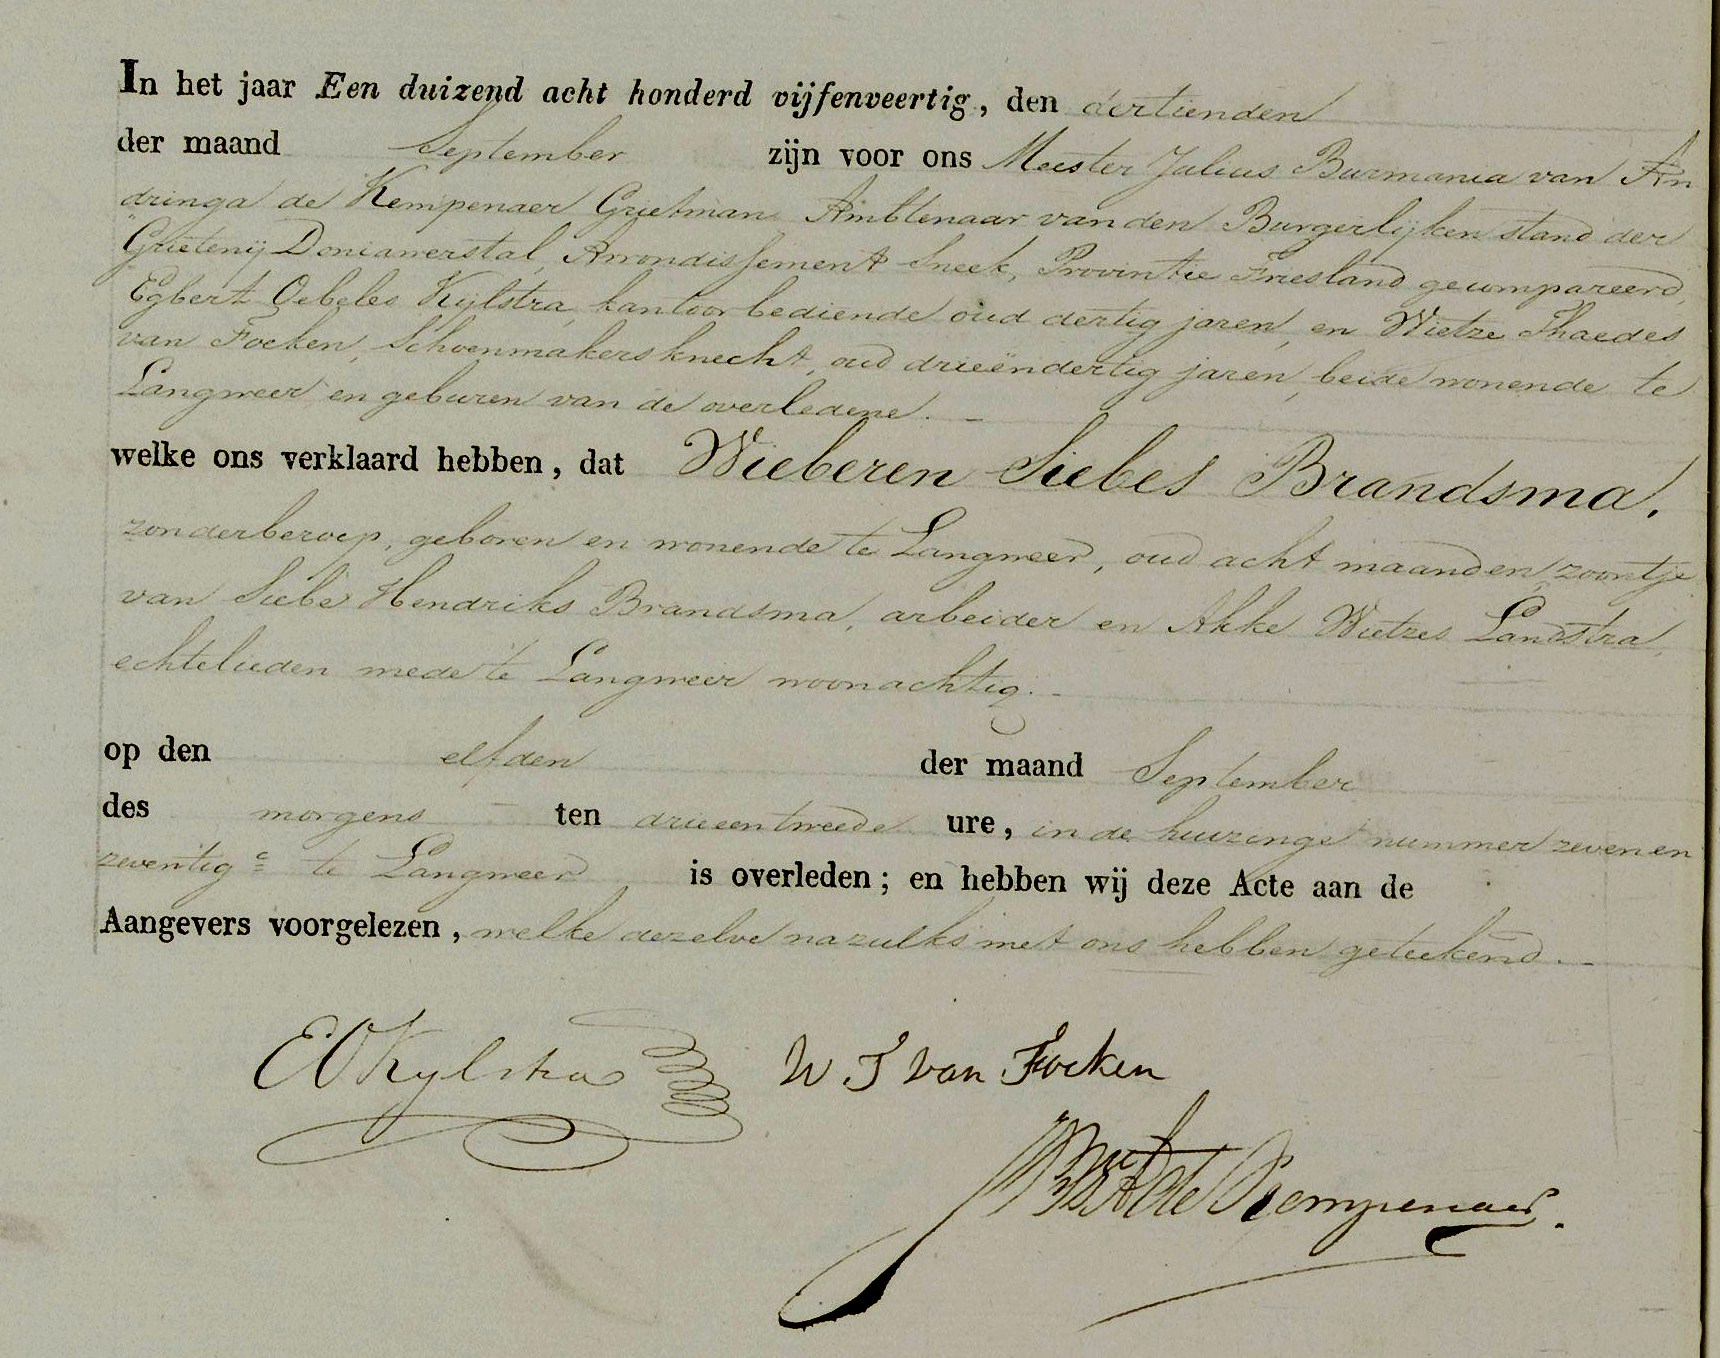 In het jaar Een duizend acht honderd vijfenveertig, den dertienden
der maand September zijn voor ons Meester Julius Burmania van An
dringa de Kempenaer Grietman Ambtenaar van den Burgerlijken stand der
Grietenij Doniawerstal, Arrondissement Sneek, Provintie Friesland gecompareerd,
Egbert Oebeles Kijlstra, kantoorbediende oud dertig jaren, en Wietze Thaedes
van Focken, Schoenmakersknecht, oud drieëndertig jaren, beide wonende te
Langweer en geburen van de overledene. –
welke ons verklaard hebben, dat Wieberen Siebes Brandsma,
zonder beroep, geboren en wonende te Langweer, oud acht maanden, zoontje
van Siebe Hendriks Brandsma, arbeider en Akke Wietzes Landstra,
echtelieden mede te Langweer woonachtig. –
op den elfden der maand September
des morgens – ten drieentweede ure, in de huizinge nummer zevenen
zeventig c te Langweer is overleden; en hebben wij deze Acte aan de
Aangevers voorgelezen, welke dezelve na zulks met ons hebben geteekend. –
EO Kylstra W T van Focken
JBVA de Kempenaer.